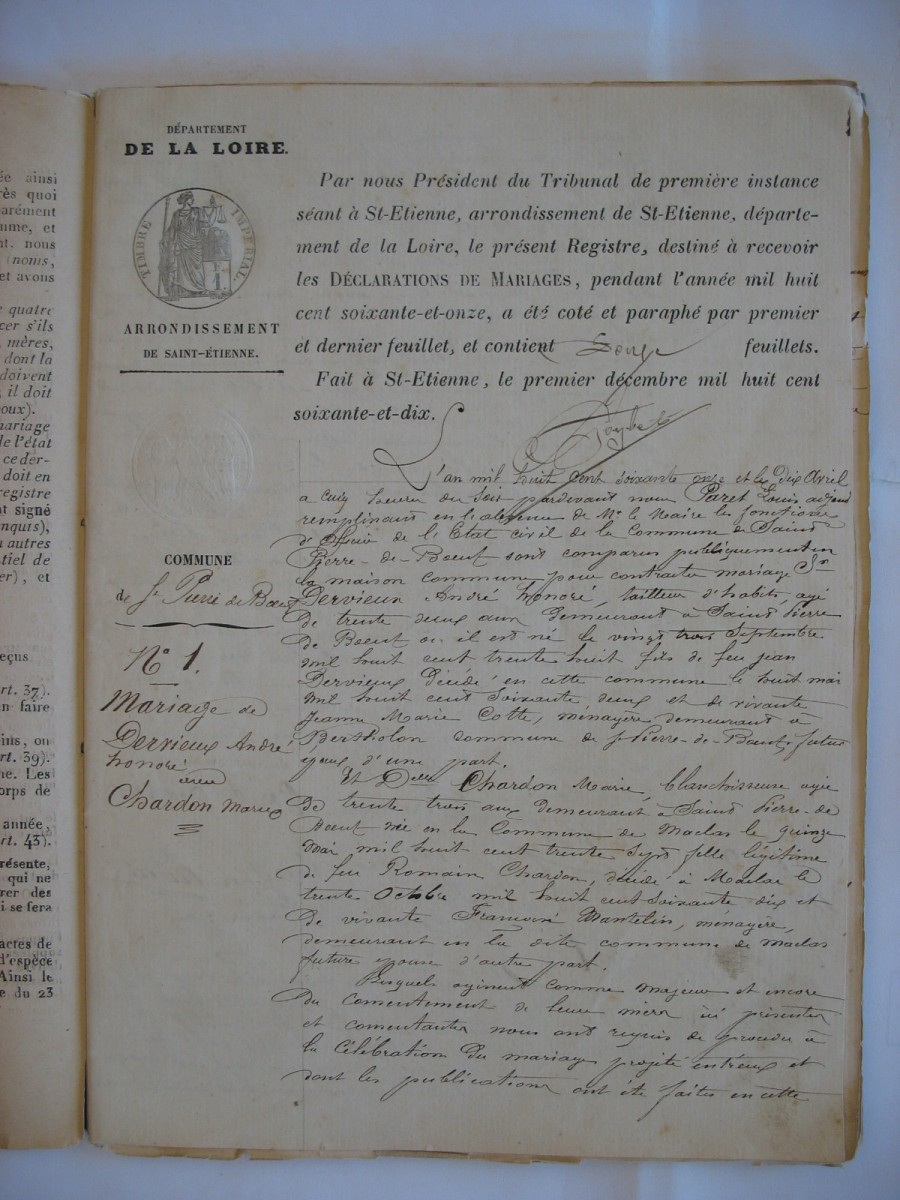 ée ainsi
rès quoi
arément
mme, et
nt. nous
(noms,
et avons
quatre
cer s'ils
mères,
dont la
doivent
, il doit
poux).
mariage
de l'état
ce der-
doit en
registre
nt signé
nquis),
autres
tiel de
er), et
eçus
rt. 37).
en faire
ins, on
art. 39).
me. Les
orps de
année,
rt. 43).
résente,
qui ne
rer des
i se fera
actes de
d'espèce
Ainsi le
e du 23
DÉPARTEMENT
DE LA LOIRE.
TIMBRE IMPÉRIAL
ARRONDISSEMENT
DE SAINT-ÉTIENNE.
COMMUNE
de St Pierre de Bœuf
N° 1.
Mariage de
Dervieux André
honoré
avec
Chardon Marie
Par nous Président du Tribunal de première instance
séant à St-Etienne, arrondissement de St-Etienne, départe-
ment de la Loire, le présent Registre, destiné à recevoir
les DÉCLARATIONS DE MARIAGES, pendant l'année mil huit
cent soixante-et-onze, a été coté et paraphé par premier
et dernier feuillet, et contient feuillets.
Fait à St-Etienne, le premier décembre mil huit cent
soixante-et-dix.
L'an mil huit cent soixante onze et le Dix Avril
a cinq heures du soir pardevant nous Paret Louis adjoint
remplissant en l'absence de Mr le Maire les fonctions
d'officier de l'Etat civil de la Commune de Saint
Pierre-de-Bœuf sont comparus publiquement en
la maison commune pour contracter mariage Sr
Dervieux André honoré, tailleur d'habits, agé
de trente deux ans demeurant à Saint Pierre
de Bœuf ou il est né le vingt trois Septembre
mil huit cent trente huit fils de feu jean
Dervieux décédé en cette commune le huit mai
mil huit cent soixante deux et de vivante
Jeanne Marie Cotte, ménagère demeurant à
Bertholon commune de St Pierre-de-Bœuf, futur
epoux d'une part.
Et Delle Chardon Marie, blanchisseuse agée
de trente trois ans demeurant à Saint Pierre-de
Bœuf née en la Commune de Maclas le quinze
mai mil huit cent trente sept fille légitime
de feu Romain Chardon, décédé à Maclas le
trente Octobre mil huit cent soixante dix et
de vivante Mantelin, ménagère,
demeurant en la dite commune de Maclas
future epouse d'autre part.
Lesquels agissent comme majeurs et encore
du consentement de leurs mères ici présentes
et consentantes nous ont requis de procéder à
la célébration du mariage projeté entr'eux et
dont les publications ont été faites en cette